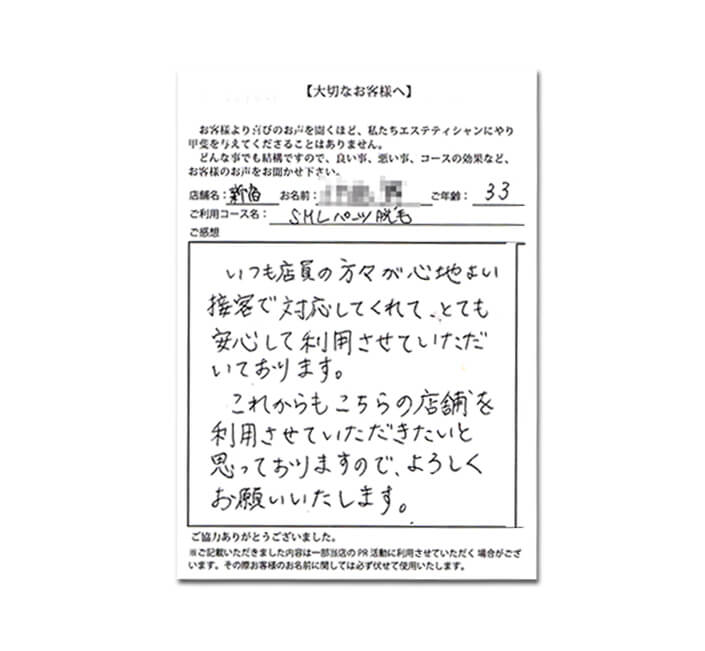 【大切なお客様へ】
お客様より喜びのお声を聞くほど、私たちエステティシャンにやり
甲斐を与えてくださることはありません。
どんな事でも結構ですので、良い事、悪い事、コースの効果など、
お客様のお声をお聞かせ下さい。
店舗名：新宿 お名前： ご年齢：33
ご利用コース名：SMLパーツ脱毛
ご感想
いつも店員の方々が心地よい
接客で対応してくれて、とても
安心して利用させていただだ
いております。
これからもこちらの店舗を
利用させていただきたいと
思っておりますので、よろしく
お願いいたします。
ご協力ありがとうございました。
※ご記載いただきました内容は一部当店のPR活動に利用させていただく場合がござ
います。その際お客様のお名前に関しては必ず伏せて使用いたします。